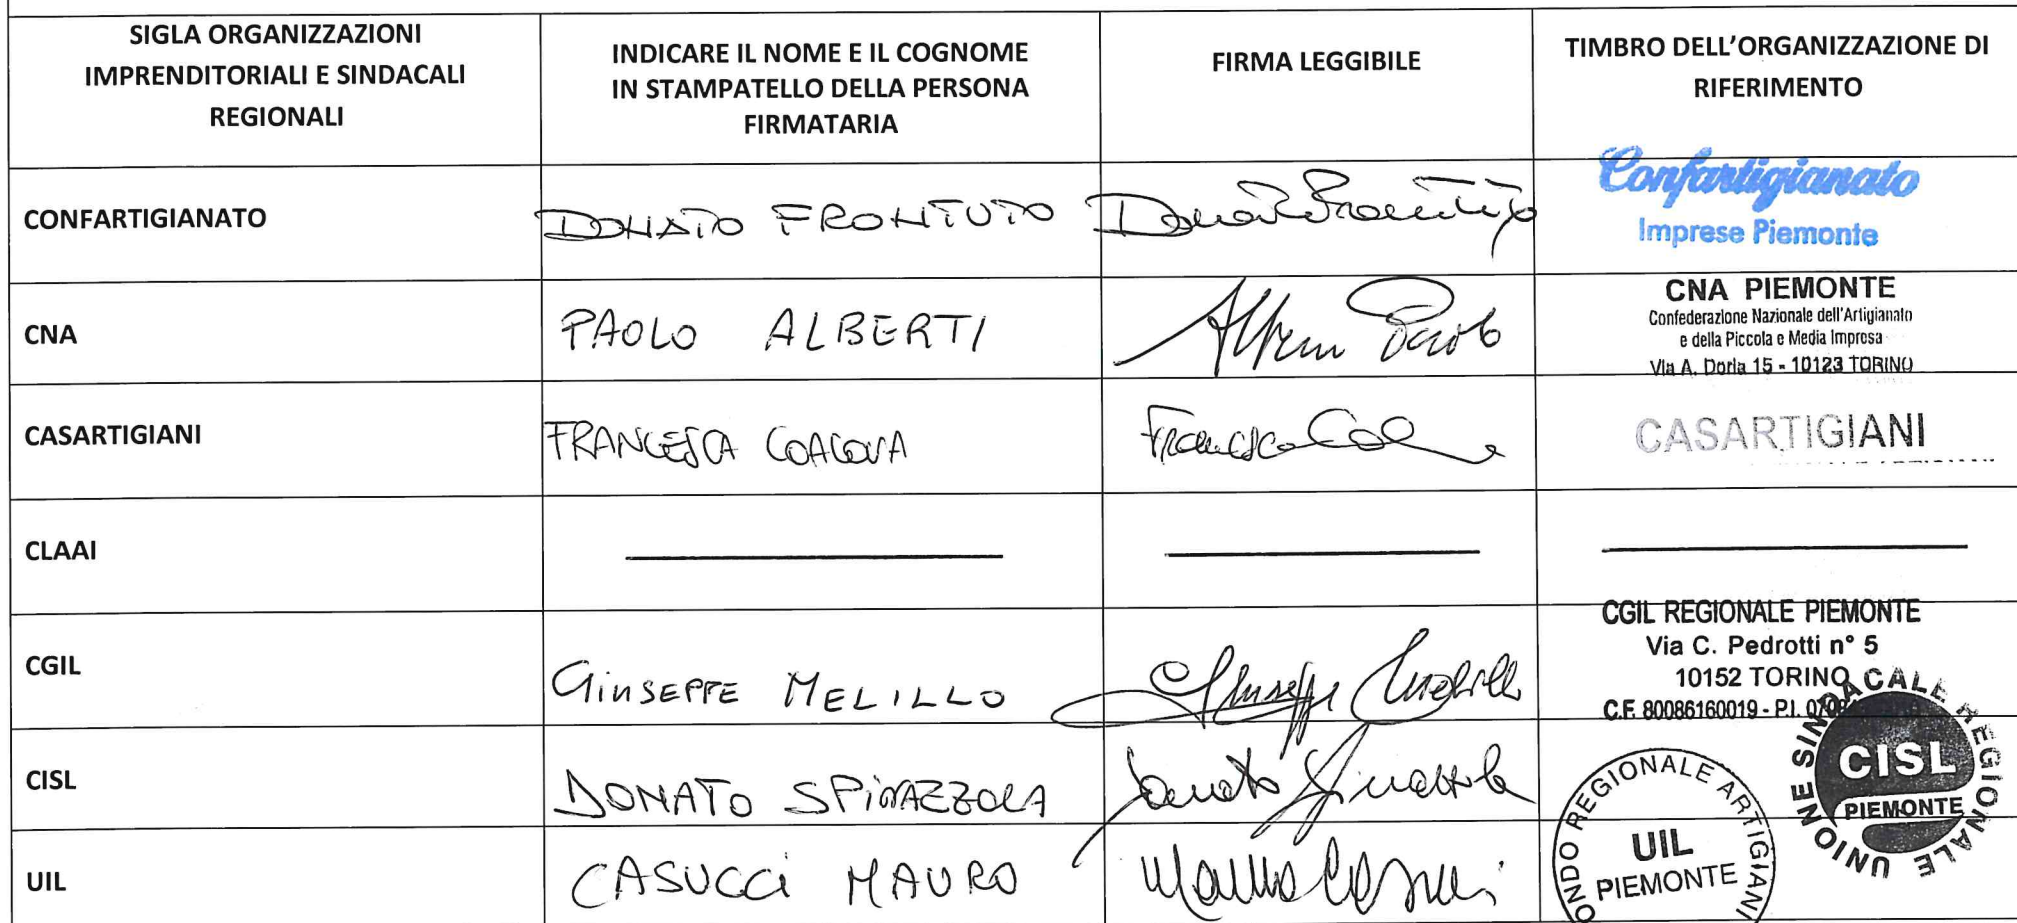 SIGLA ORGANIZZAZIONI
IMPRENDITORIALI E SINDACALI
REGIONALI
INDICARE IL NOME E IL COGNOME
IN STAMPATELLO DELLA PERSONA
FIRMATARIA
FIRMA LEGGIBILE
TIMBRO DELL'ORGANIZZAZIONE DI
RIFERIMENTO
CONFARTIGIANATO
DONATO FRONTUTO
Donato Frontuto
Confartigianato
Imprese Piemonte
CNA
PAOLO ALBERTI
Paolo
CNA PIEMONTE
Confederazione Nazionale dell'Artigianato
e della Piccola e Media Impresa
Via A. Doria 15 - 10123 TORINO
CASARTIGIANI
FRANCESCA COALOVA
Francesca
CASARTIGIANI
CLAAI
CGIL
GIUSEPPE MELILLO
Giuseppe Melillo
CGIL REGIONALE PIEMONTE
Via C. Pedrotti n° 5
10152 TORINO
C.F. 80086160019 - P.I.
CISL
DONATO SPINAZZOLA
Donato Spinazzola
UNIONE SINDACALE REGIONALE
CISL
PIEMONTE
UIL
CASUCCI MAURO
Mauro Casucci
REGIONALE ARTIGIANI
UIL
PIEMONTE